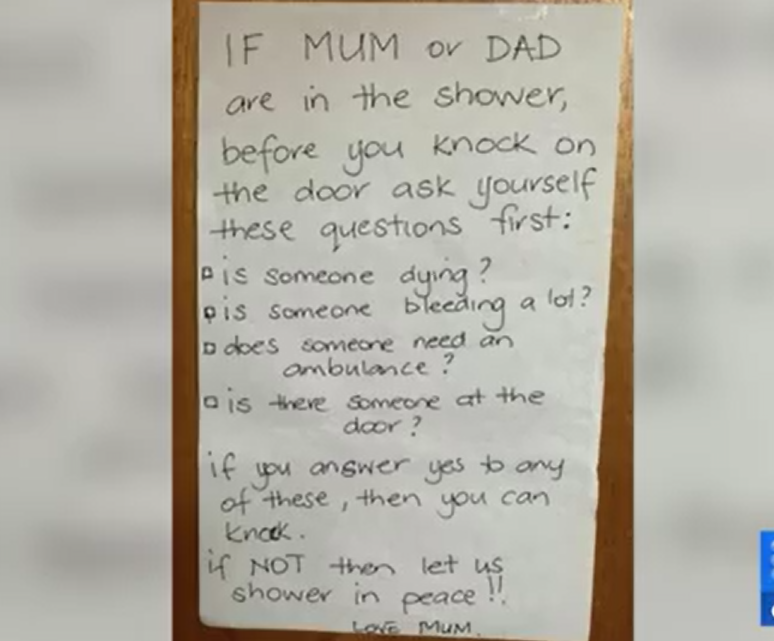 IF MUM or DAD
are in the shower,
before you knock on
the door ask yourself
these questions first:
is someone dying?
is someone bleeding a lot?
does someone need an
ambulance?
is there someone at the
door?
if you answer yes to any
of these, then you can
knock.
if NOT then let us
shower in peace!!
LOVE MUM.